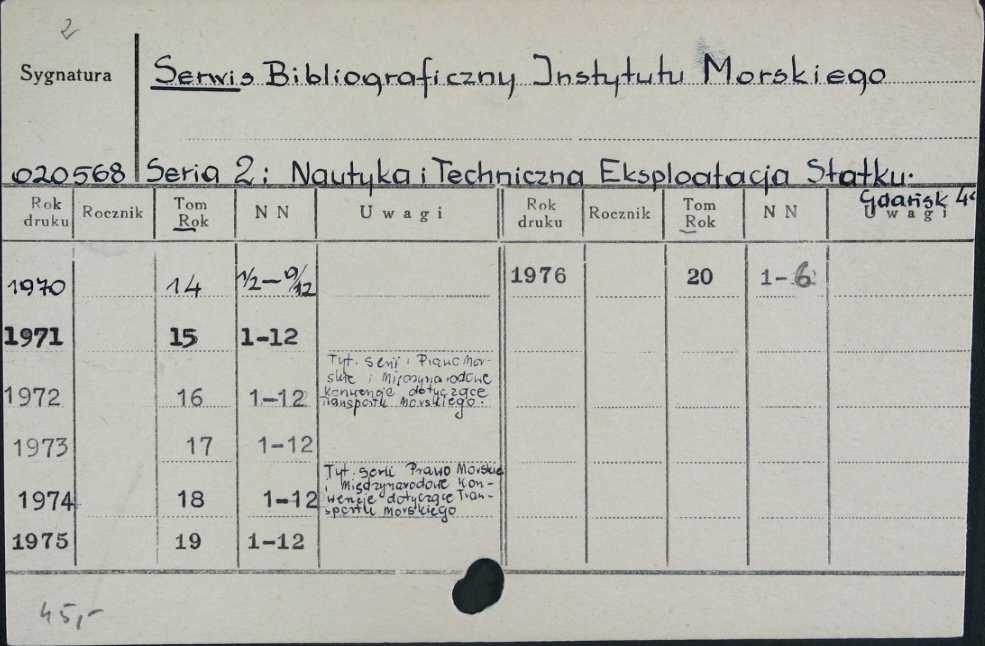 2
Sygnatura
Serwis Bibliograficzny Instytutu Morskiego
020568 Seria 2: Nautyka i Techniczna Eksploatacja Statku.
Gdańsk 4°
Rok druku Rocznik Tom Rok NN Uwagi Rok druku Rocznik Tom Rok NN Uwagi
1970 14 1/2-9/12 1976 20 1-6
1971 15 1-12
1972 16 1-12
Tyt. serii: Prawo Mor-
skie i Międzynarodowe
Konwencje dotyczące
Transportu Morskiego.
1973 17 1-12
1974 18 1-12
Tyt. serii Prawo Morskie
i Międzynarodowe Kon-
wencje dotyczące Tran-
sportu Morskiego
1975 19 1-12
45,-